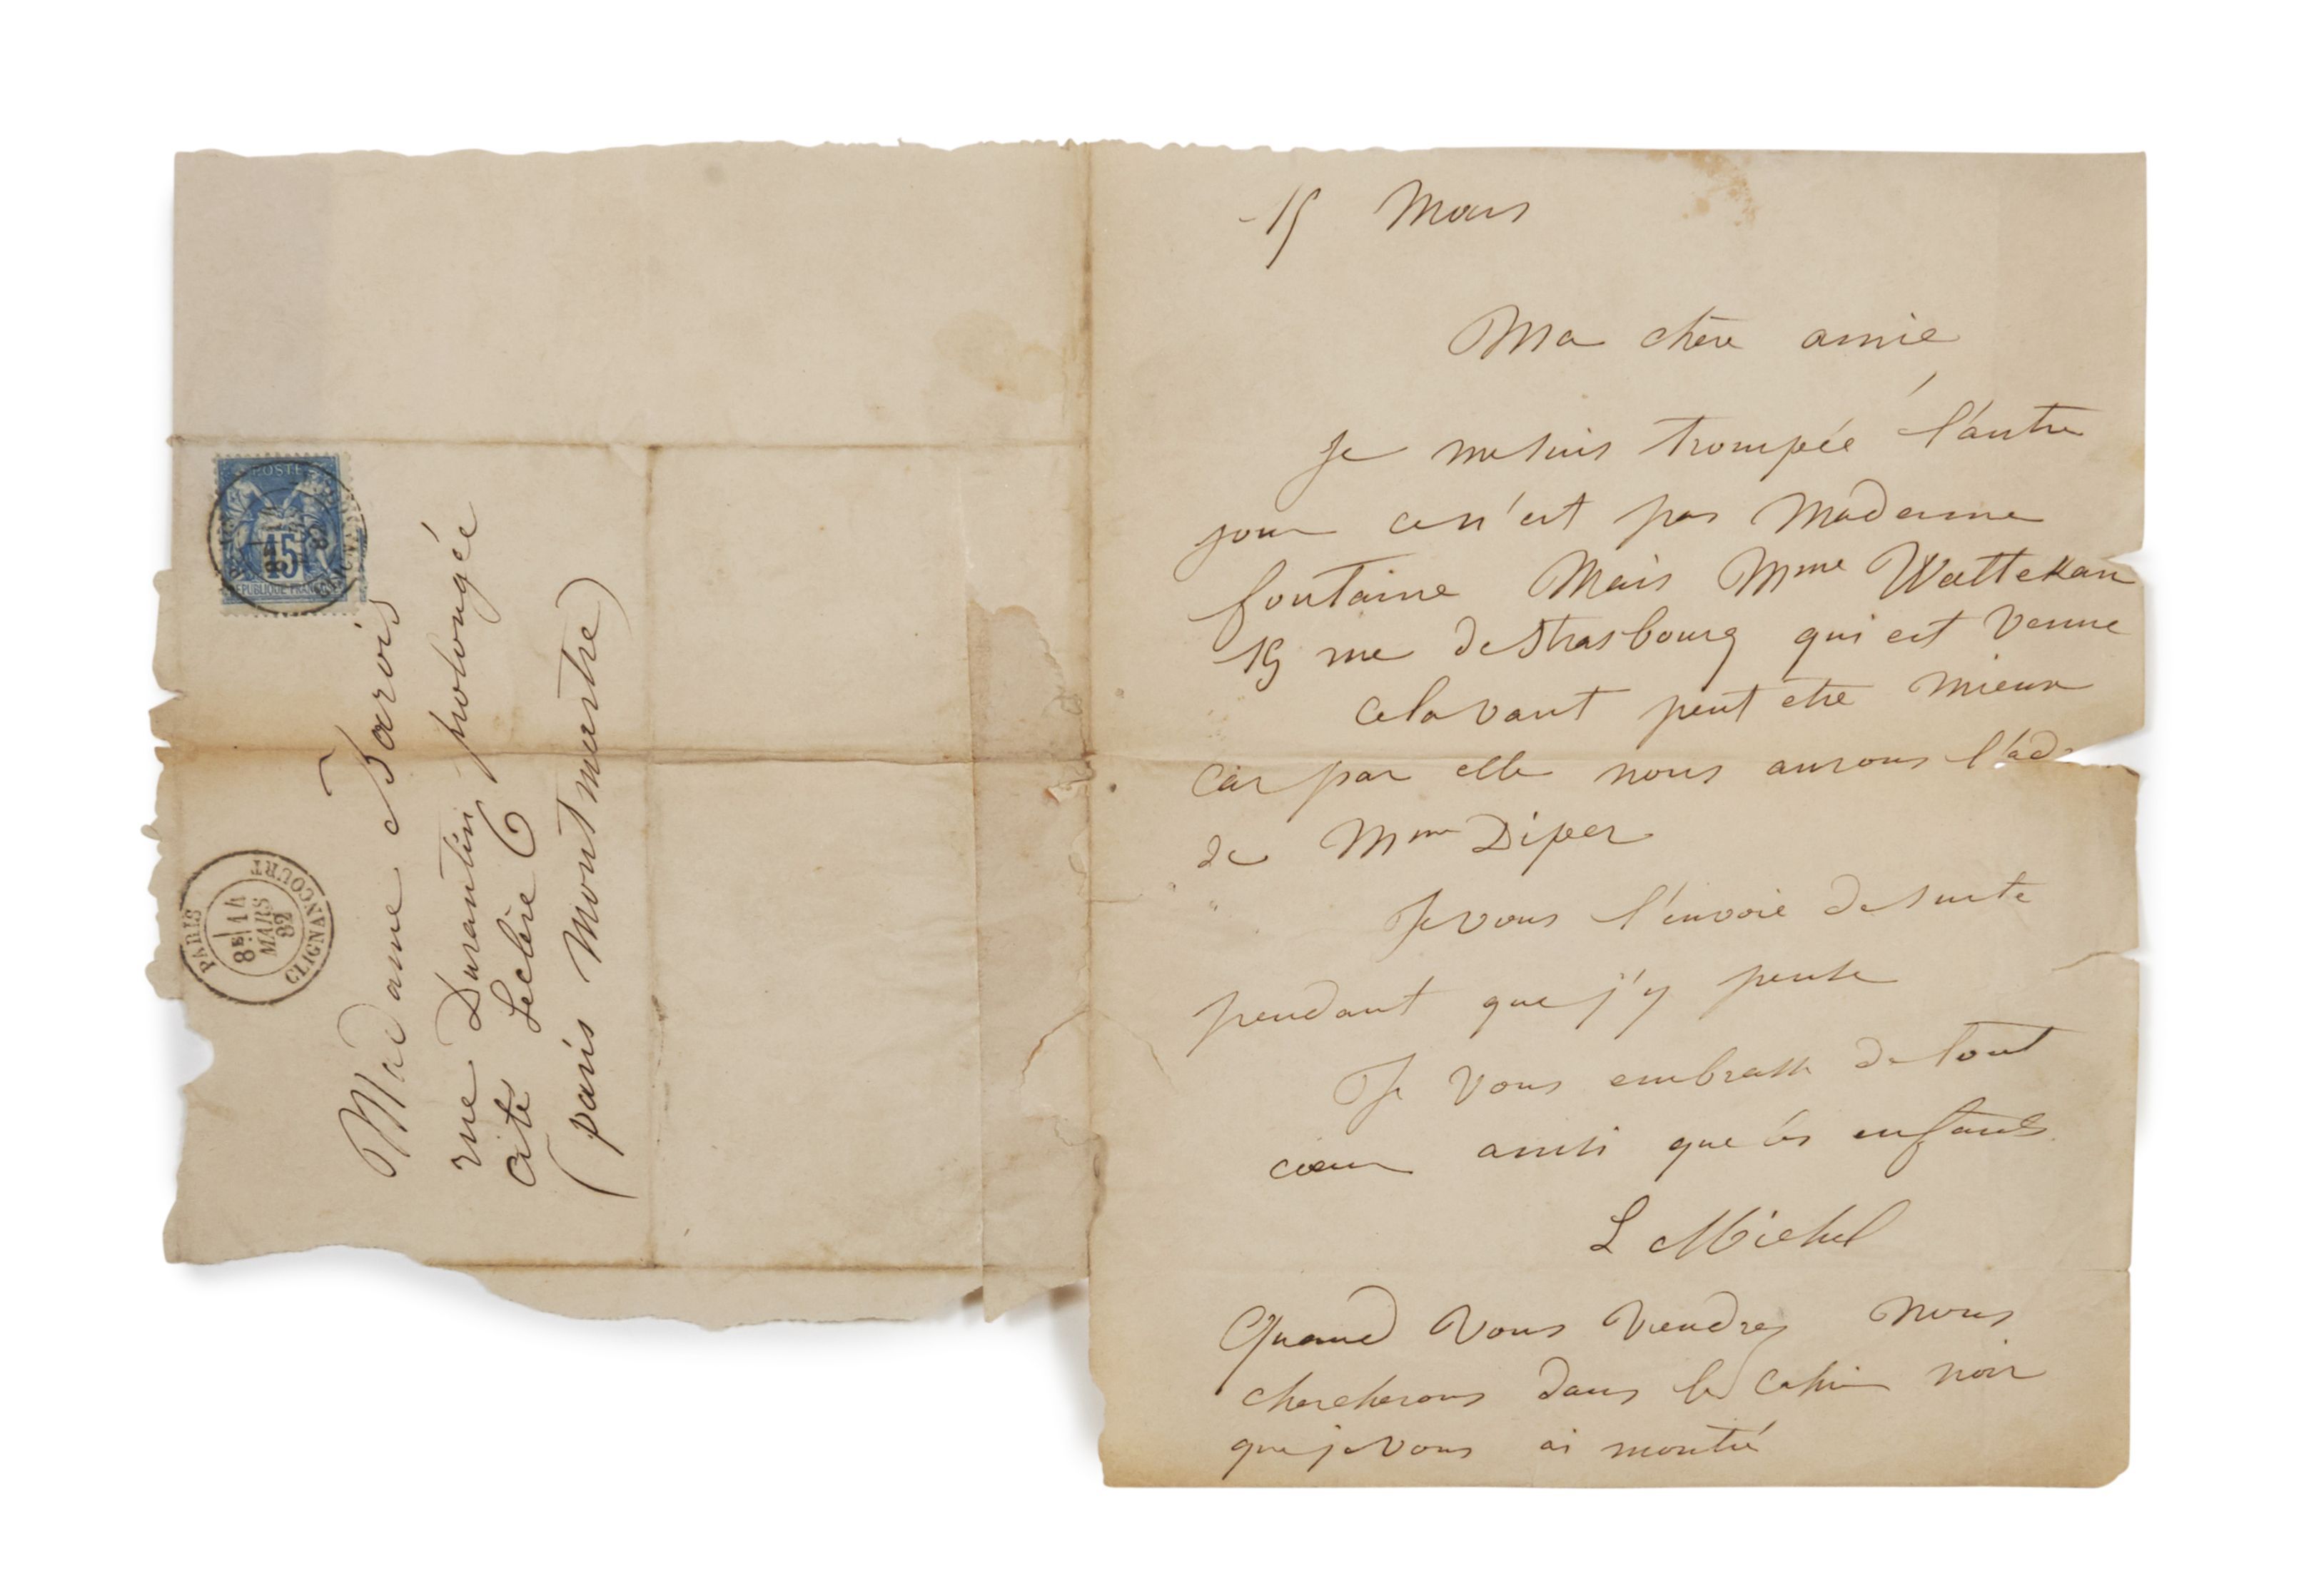 Madame Barois
rue Durantin prolongée
Cité Leclère 6
(paris Montmartre)
PARIS
8E 14
MARS
82
CLIGNANCOURT
POSTE
15
REPUBLIQUE FRANÇAISE
15 Mars
Ma chère amie
Je me suis trompée l'autre
jour ce n'est pas Madame
fontaine Mais Mme
19 rue de Strasbourg qui est venue
cela vaut peut etre mieux
car par elle nous aurons l'ad
de Mme Diper
Je vous l'envoie de suite
pendant que j'y pense
Je vous embrasse de tout
cœur ainsi que les enfants.
L Michel
Quand vous viendrez nous
chercherons dans le cahier noir
que je vous ai montré